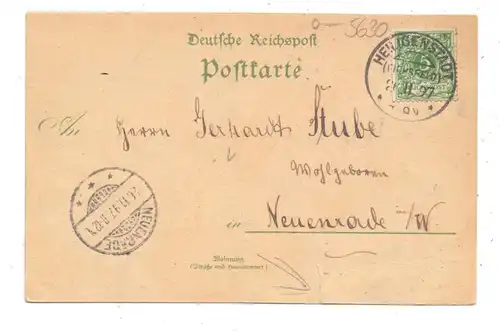 5630
Deutsche Reichspost
Postkarte
HEILIGENSTADT
(EICHSFELD)
11.97
An
Herrn Gerhardt Stube
Wohlgeboren
in Neuenrade i/W
NEUENRADE
Wohnung
(Straße und Hausnummer)